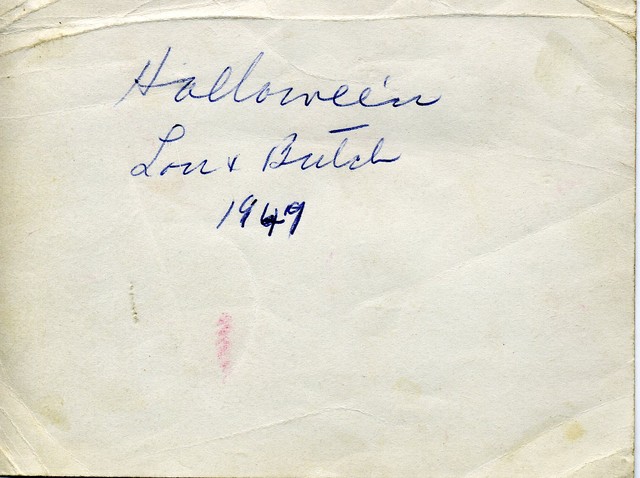 Hallowe'en
Lon & Butch
1949